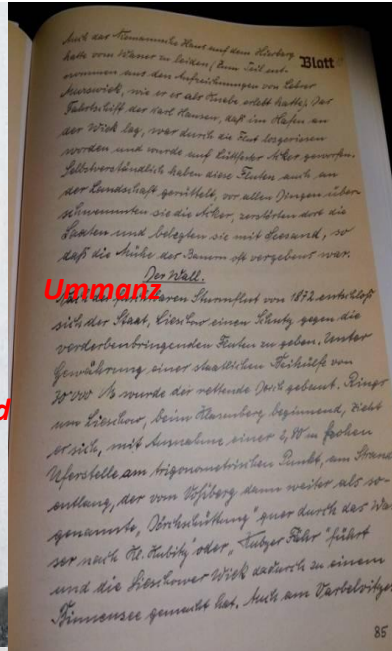 Auch das Niemannsche Haus auf dem Hierberg
Blatt
hatte vom Wasser zu leiden (Zum Teil ent-
nommen aus den Aufzeichnungen von Lehrer
wie er es als Knabe erlebt hatte). Das
Fahrtschiff der Karl Hansen, daß im Hafen an
der Wiek lag, war durch die Flut losgerissen
worden und wurde auf Lütkesser Acker geworfen.
Selbstverständlich haben diese Fluten auch an
der Landschaft gerüttelt, vor allen Dingen über-
schwemmten sie die Äcker, zerstörten dort die
Saaten und belegten sie mit Seesand, so
daß die Mühe der Bauern oft vergebens war.
Der Wall.
Ummanz
Nach der furchtbaren Sturmflut von 1872 entschloß
sich der Staat, Lieschow einen Schutz gegen die
verderbenbringenden Fluten zu geben. Unter
Gewährung einer staatlichen Beihülfe von
30 000 M wurde der rettende Deich gebaut. Rings
um Lieschow, beim beginnend, zieht
er sich, mit Ausnahme einer 2,80 m hohen
Uferstelle am trigonometrischen Punkt, am Strand
entlang, der vom Voßberg dann weiter als so-
genannte "Durchschüttung" quer durch das Was-
ser nach Kl. Kubitz oder "Kubzer Fähr" führt
und die Lieschower Wiek dadurch zu einem
Binnensee gemacht hat. Auch am Varbelvitzer
d
85